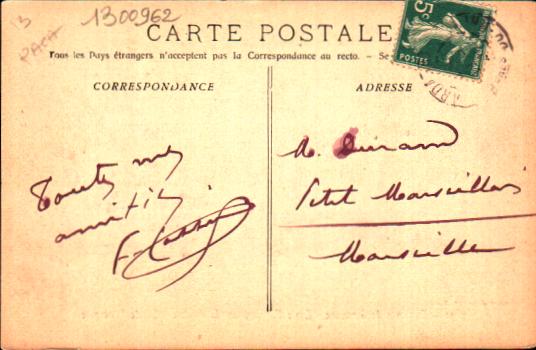 13
PACA
1300962
CARTE POSTALE
Tous les Pays étrangers n'acceptent pas la Correspondance au recto. - Se
5c
POSTES
CORRESPONDANCE
ADRESSE
Toutes mes
amitiés
M. Durand
Petit Marseillais
Marseille